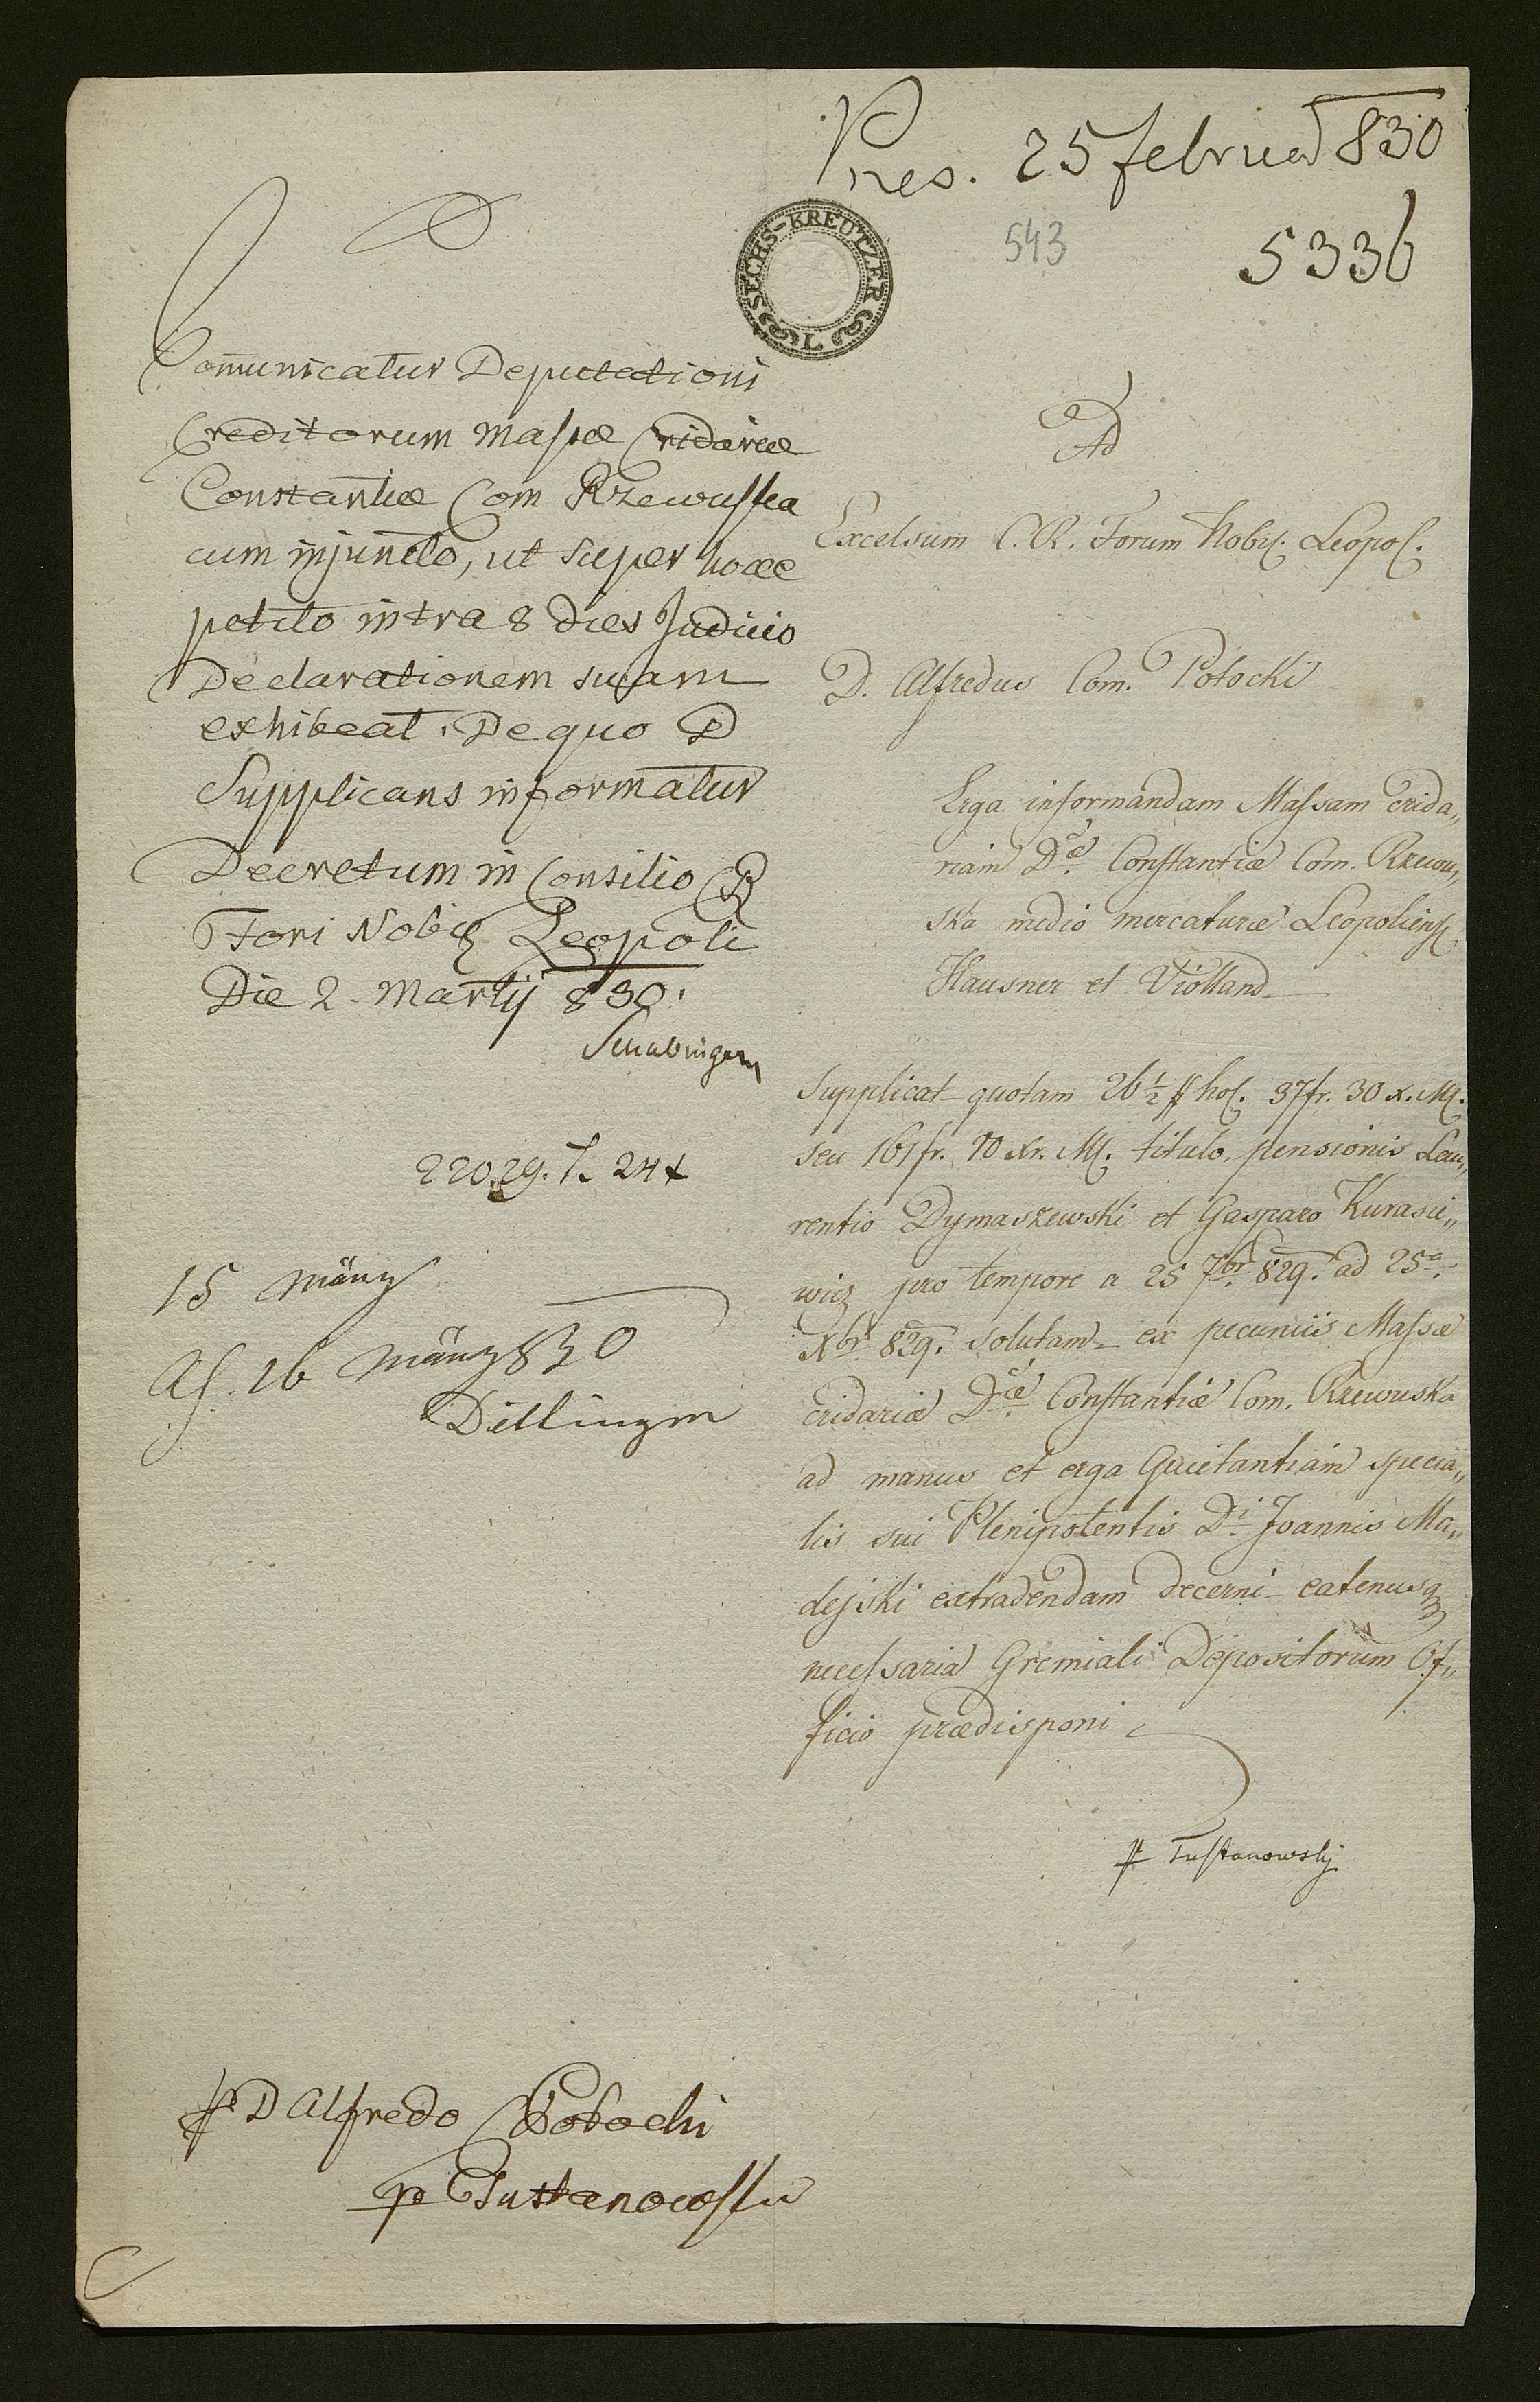 Pres. 25 februar 830
543
5336
SECHS-KREUTZER
L
Com̄unicatur Deputationi
Creditorum Massæ Cridariæ
Constantiæ Com Rzewuska
cum injuncto, ut super hocce
petito intra 8 dies Judicio
Declarationem suam
exhibeat. De quo D
Supplicans informatur
Decretum in Consilio
Fori Nobil Leopoli
Die 2. Martij 830.
22029. 24
15 März
16 März 830
D Alfredo Potocki
p Tustanowski
Ad
Excelsum C. R. Forum Nobil. Leopol.
D. Alfredus Com. Potocki
Erga informandam Massam crida„
riam Dæ Constantiæ Com. Rzewu„
ska medio mercaturæ Leopoliens
Hausner et Violland
Supplicat quotam 26 1/2 # hol. 37 fr. 30 x. M.
seu 161 fr. 10 xr. M. titulo pensionis Lau„
rentio Dymaszewski et Gasparo Kurasie„
wicz pro tempore a 25 7br 829. ad 25a
Xbr 829. solutam ex pecuniis Massæ
cridariæ Dæ Constantiæ Com. Rzewuska
ad manus et erga Quietantiam specia„
lis sui Plenipotentis Di Joannis Ma„
dejski extradendam decerni eatenusq
necessaria Gremiali Depositorum Of„
ficio prædisponi
Tustanowski